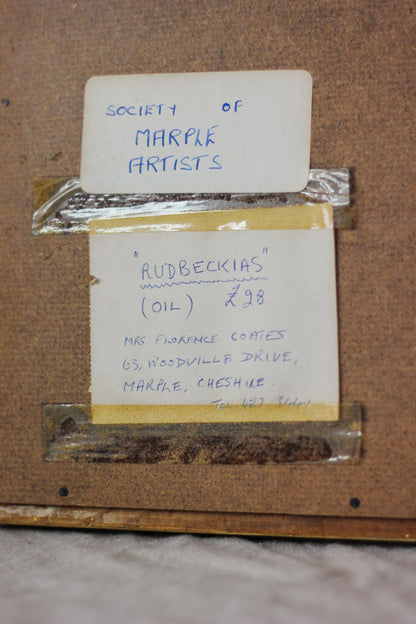 SOCIETY OF
MARPLE
ARTISTS
"RUDBECKIAS"
(OIL) £28
MRS FLORENCE COATES
63, WOODVILLE DRIVE,
MARPLE, CHESHIRE.
TEL 427